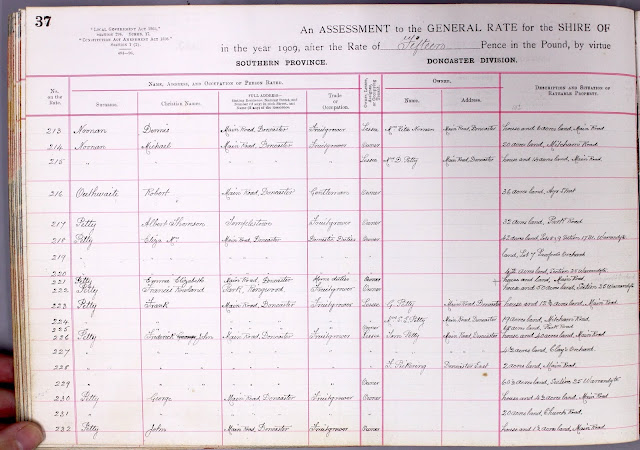 37
"Local Government Act 1890,"
An ASSESSMENT to the GENERAL RATE for the SHIRE OF
in the year 1909, after the Rate of Fifteen Pence in the Pound, by virtue
SOUTHERN PROVINCE. DONCASTER DIVISION.
No. on the Rate.
Name, Address, and Occupation of Person Rated.
Surname. Christian Name. FULL ADDRESS— Trade or Occupation.
Owner.
Name. Address.
Description and Situation of Rateable Property.
213 Noonan Dennis Main Road, Doncaster Fruitgrower Lessee Noonan Main Road, Doncaster house and 6 acres land, Main Road
214 Noonan Michael Main Road, Doncaster Fruitgrower Owner 20 acres land, Mitcham Road
215 " " " " Lessee Mrs D. Petty Main Road, Doncaster house and 16 acres land, Main Road
216 Outhwaite Robert Main Road, Doncaster Gentleman Owner 36 acres land,
217 Petty Albert Thomson Templestowe Fruitgrower Owner 32 acres land, Park Road
218 Petty Eliza Main Road, Doncaster Domestic Duties Owner 62 acres land, Warrandyte
219 " " land, Lot 7 Orchard
220 acres land, Section 25 Warrandyte
221 Petty Emma Elizabeth Main Road, Doncaster Home duties Owner house and land, Main Road
222 Petty Francis Park, Ringwood Fruitgrower Owner house and 50 acres land, Section 25 Warrandyte
223 Petty Frank Main Road, Doncaster Fruitgrower Lessee G. Petty Main Road, Doncaster house and 12½ acres land, Main Road
224 " " " " " Petty Main Road, Doncaster 19 acres land, Mitcham Road
225 Owner acres land, Park Road
226 Petty Frederick John Main Road, Doncaster Fruitgrower Lessee Tom Petty Main Road, Doncaster house and 20 acres land, Main Road
227 " " " " " " " acres land, Clay's Orchard
228 " " " " " Pickering Doncaster East 2 acres land, Main Road
229 " " " " Owner 60½ acres land, Section 25 Warrandyte
230 Petty George Main Road, Doncaster Fruitgrower Owner house and 42 acres land, Main Road
231 " " " " " 20 acres land, Church Road
232 Petty John Main Road, Doncaster Fruitgrower Owner house and 12 acres land, Main Road